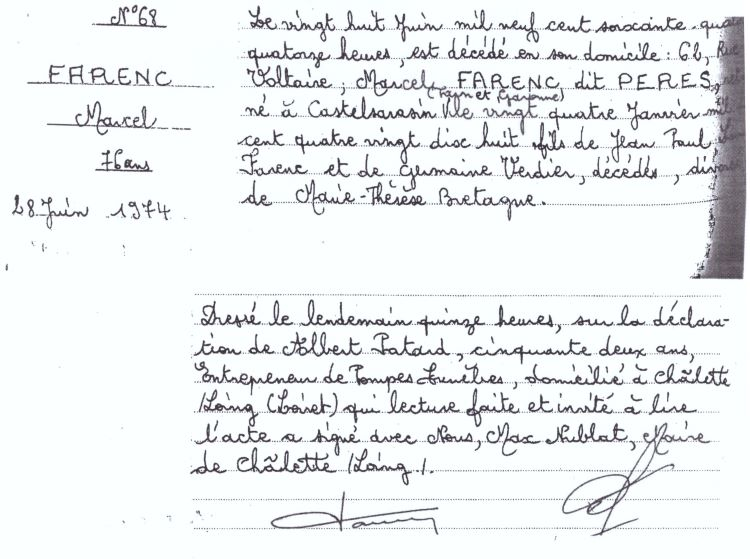 N°68
FARENC
Marcel
76 ans
28 Juin 1974
Le vingt huit Juin mil neuf cent soixante
quatorze heures, est décédé en son domicile : 62, Rue
Voltaire, Marcel, FARENC, dit PERES,
(Tarn et Garonne)
né à Castelsarasin le vingt quatre Janvier mil
cent quatre vingt disc huit fils de Jean Paul,
Farenc et de Germaine Verdier, décédés,
de Marie-Thérèse Bretagne.
Dressé le lendemain quinze heures, sur la déclara-
tion de Albert Patard, cinquante deux ans,
Entrepreneur de Pompes Funèbres, domicilié à Châlette
/Loing (Loiret) qui lecture faite et invité à lire
l'acte a signé avec Nous, Max Nublat, Maire
de Châlette /Loing /.